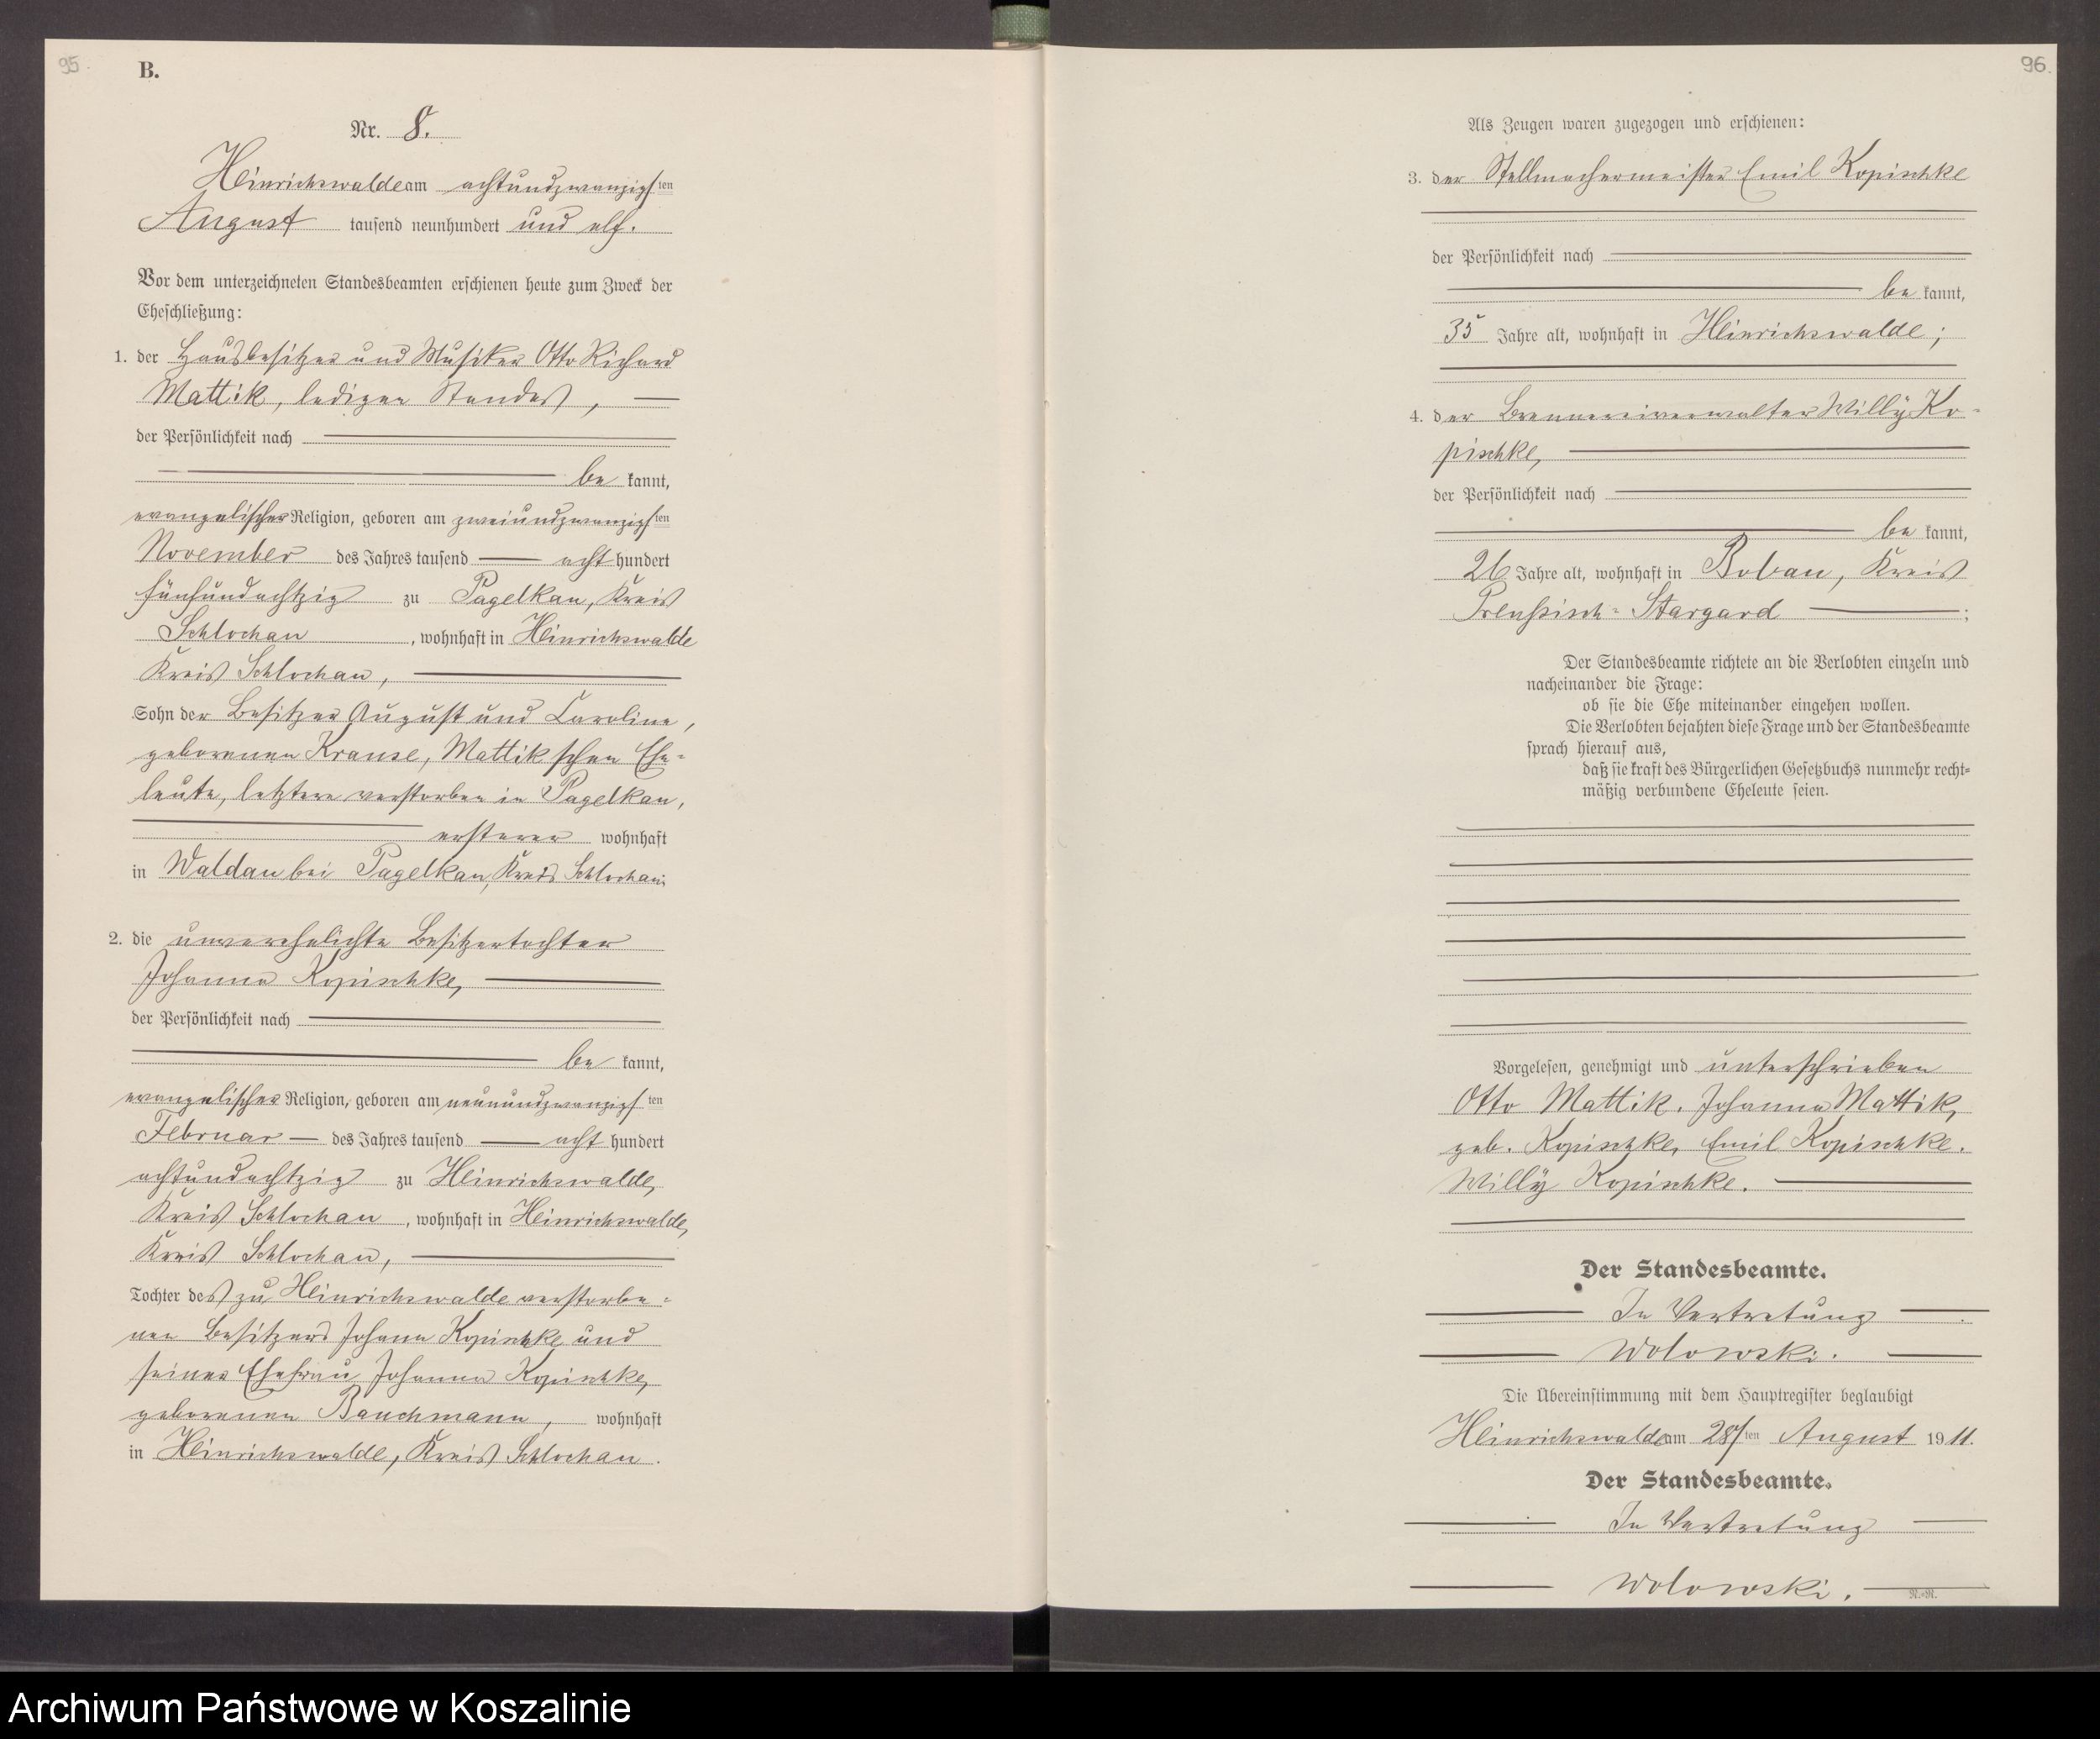 95.
B.
Nr. 8.
Heinrichswalde am achtundzwanzigsten
August tausend neunhundert und elf.
Vor dem unterzeichneten Standesbeamten erschienen heute zum Zweck der
Eheschließung:
1. der Hausbesitzer und Musiker Otto Richard
Mattik, ledigen Standes,
der Persönlichkeit nach
be kannt,
evangelischer Religion, geboren am zweiundzwanzigsten
November des Jahres tausend acht hundert
fünfundachtzig zu Pagelkau, Kreis
Schlochau, wohnhaft in Heinrichswalde
Kreis Schlochau,
Sohn der Besitzer August und Caroline,
geborenen Krause, Mattikschen Ehe=
leute, letztere verstorben in Pagelkau,
ersterer wohnhaft
in Waldau bei Pagelkau, Kreis Schlochau;
2. die unverehelichte Besitzertochter
Johanna Kopischke,
der Persönlichkeit nach
be kannt,
evangelischer Religion, geboren am neunundzwanzigsten
Februar des Jahres tausend acht hundert
achtundachtzig zu Heinrichswalde,
Kreis Schlochau, wohnhaft in Heinrichswalde,
Kreis Schlochau,
Tochter des zu Heinrichswalde verstorbe=
nen Besitzers Johann Kopischke und
seiner Ehefrau Johanna Kopischke,
geborenen Bauchmann, wohnhaft
in Heinrichswalde, Kreis Schlochau.
96.
Als Zeugen waren zugezogen und erschienen:
3. der Stellmachermeister Emil Kopischke
der Persönlichkeit nach
be kannt,
35 Jahre alt, wohnhaft in Heinrichswalde;
4. der Brennereiverwalter Willy Ko=
pischke,
der Persönlichkeit nach
be kannt,
26 Jahre alt, wohnhaft in Bobau, Kreis
Preußisch=Stargard ;
Der Standesbeamte richtete an die Verlobten einzeln und
nacheinander die Frage:
ob sie die Ehe miteinander eingehen wollen.
Die Verlobten bejahten diese Frage und der Standesbeamte
sprach hierauf aus,
daß sie kraft des Bürgerlichen Gesetzbuchs nunmehr recht=
mäßig verbundene Eheleute seien.
Vorgelesen, genehmigt und unterschrieben
Otto Mattik. Johanna Mattik,
geb. Kopischke, Emil Kopischke.
Willy Kopischke.
Der Standesbeamte.
In Vertretung
Wolowski.
Die Übereinstimmung mit dem Hauptregister beglaubigt
Heinrichswalde am 28ten August 1911.
Der Standesbeamte.
In Vertretung
Wolowski.
N.=R.
Archiwum Państwowe w Koszalinie